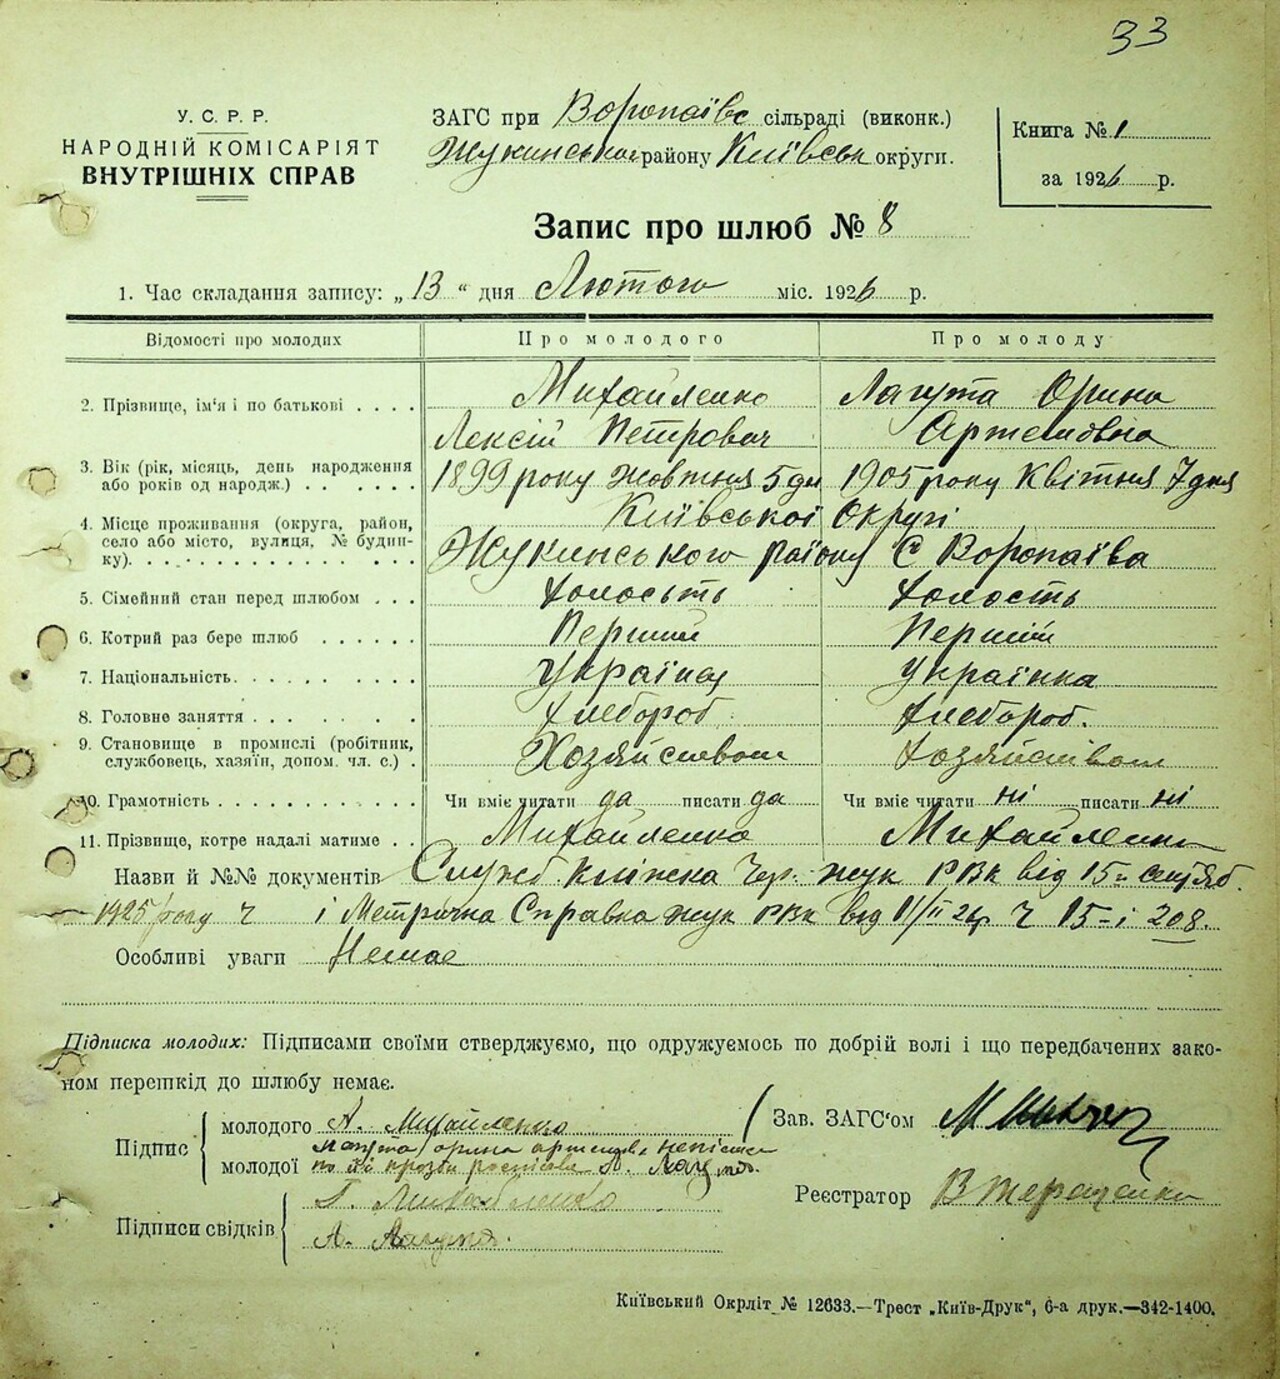 33
У. С. Р. Р.
НАРОДНІЙ КОМІСАРІЯТ
ВНУТРІШНІХ СПРАВ
ЗАГС при Воропаївс сільраді (виконк.)
Жукинського району Київськ округи.
Книга № 1
за 1926 р.
Запис про шлюб № 8
1. Час складання запису: „13“ дня Лютого міс. 1926 р.
Відомості про молодих
Про молодого
Про молоду
2. Прізвище, ім‘я і по батькові . . . .
Михайленко
Лексій Петрович
Лагута Орина
Артемовна
3. Вік (рік, місяць, день народження
або років од народж.) . . . . . .
1899 року жовтня 5 дн
1905 року Квітня 7 дня
4. Місце проживання (округа, район,
село або місто, вулиця, № будин-
ку). . . . . . . . . . . . . . .
Київської Округі
Жукинського району С Воропаїва
5. Сімейний стан перед шлюбом . . .
холосьть
холость
6. Котрий раз бере шлюб . . . . . .
Перший
Перший
7. Національність. . . . . . . . . .
Українец
Українка
8. Головне заняття . . . . . . . .
хлебороб
хлебороб.
9. Становище в промислі (робітник,
службовець, хазяїн, допом. чл. с.) .
Хозяйством
хозяйством
10. Грамотність . . . . . . . . . . .
Чи вміє читати да писати да
Чи вміє читати ні писати ні
11. Прізвище, котре надалі матиме . .
Михайленко
Михайленко
Назви й №№ документів Служб Кніжка Чер. жук РВК від 15
1925 року ч і Метрична Справка жук РВК від 11/II 26р Ч 15 і 208.
Особливі уваги Немає
Підписка молодих: Підписами своїми стверджуємо, що одружуємось по добрій волі і що передбачених зако-
ном перешкід до шлюбу немає.
Підпис
молодого А. Михайленко
молодої
Лагута Орина
по її прозби
Підписи свідків
Г. Михайленко
А. Лагута.
Зав. ЗАГС‘ом
Реєстратор
Київський Окрліт № 12633.—Трест „Київ-Друк“, 6-а друк.—342-1400.